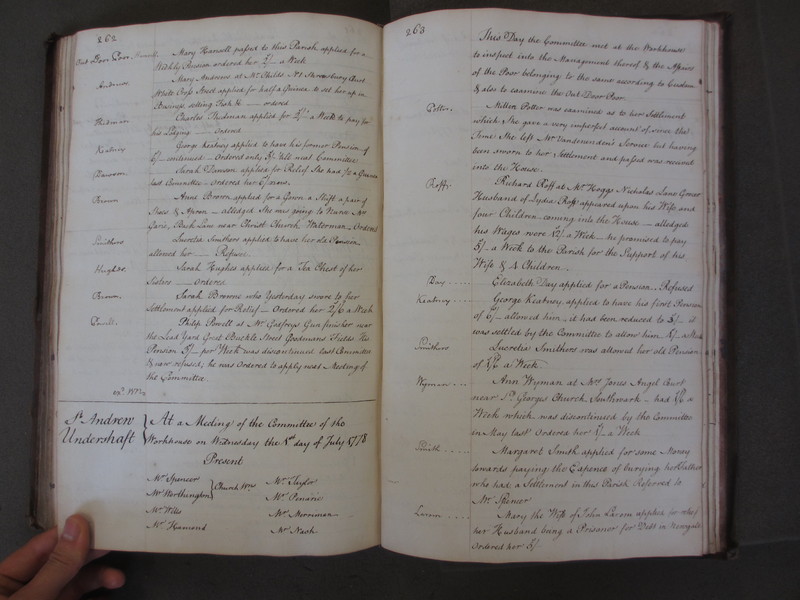 262
Out Door Poor
Mary Hansell passed to this Parish applied for a
Weekly Pension ordered her 2/- a Week
Andrews
Mary Andrews at Mr. Childs No. 1 Shrewsbury Court
White Cross Street applied for half a Guinea to set her up in
Business, selling Fish &c — ordered
Thidman
Charles Thidman applied for 2/- a Week to pay for
his Lodging — Ordered
Keatney
George Keatney applied to have his former Pension of
6/- continued — Ordered only 5/- till next Committee
Dawson
Sarah Dawson applied for Relief She had
last Committee — ordered her
Brown
Anne Brown applied for a Gown a Shift a pair of
Shoes & Apron — alledged She was going to Nurse Mr
Bush Lane near Christ Church, Waterman — Ordered
Smithers
Lucretia Smithers applied to have her old Pension
allowed her — Refused
Hughes
Sarah Hughes applied for a Tea Chest of her
Sisters — ordered
Brown
Sarah Browne who Yesterday swore to her
Settlement applied for Relief — Ordered her 2/6 a Week
Powell
Philip Powell at Mr. Godfreys Gun finisher near
the Lead Yard Great Buckle Street Goodmans Fields His
Pension 5/- per Week was discontinued last Committee
& now refused; he was Ordered to apply next Meeting of
the Committee.
St. Andrew
Undershaft
At a Meeting of the Committee of the
Workhouse on Wednesday the 1st day of July 1778
Present
Mr Spencer
Mr Worthington
Church Wns
Mr. Wills
Mr. Hamond
Mr. Taylor
Mr.
Mr. Merriman
Mr Nash
263
This Day the Committee met at the Workhouse
to inspect into the Management thereof & the Affairs
of the Poor belonging to the same according to Custom
& also to examine the Out Door Poor
Potter
Potter was examined as to her Settlement
which She gave a very imperfect account of, over the
Time She left Mr Vandermenden's Service but having
been sworn to her Settlement and passed was received
into the House.
Roff
Richard Roff at Mr Hoggs Nicholas Lane Grocer
Husband of Lydia Roff appeared upon his Wife and
four Children coming into the House — alledged
his Wages were 12/- a Week — he promised to pay
5/- a Week to the Parish for the Support of his
Wife & 4 Children.
Day
Elizabeth Day applied for a Pension. Refused
Keatney
George Keatney applied to have his first Pension
of 6/- allowed him, it had been reduced to 5/- it
was settled by the Committee to allow him 5/- a Week
Smithers
Lucretia Smithers was allowed her old Pension
of a Week
Wyman
Ann Wyman at Mrs Jones Angel Court
near St. Georges Church Southwark — had a
Week which was discontinued by the Committee
in May last Ordered her 1/- a Week
Smith
Margaret Smith applied for some Money
towards paying the Expence of burying her Father
who had a Settlement in this Parish Referred to
Mr Spencer
Larom
Mary the Wife of John Larom applied for relief
her Husband being a Prisoner for Debt in Newgate
Ordered her 2/-